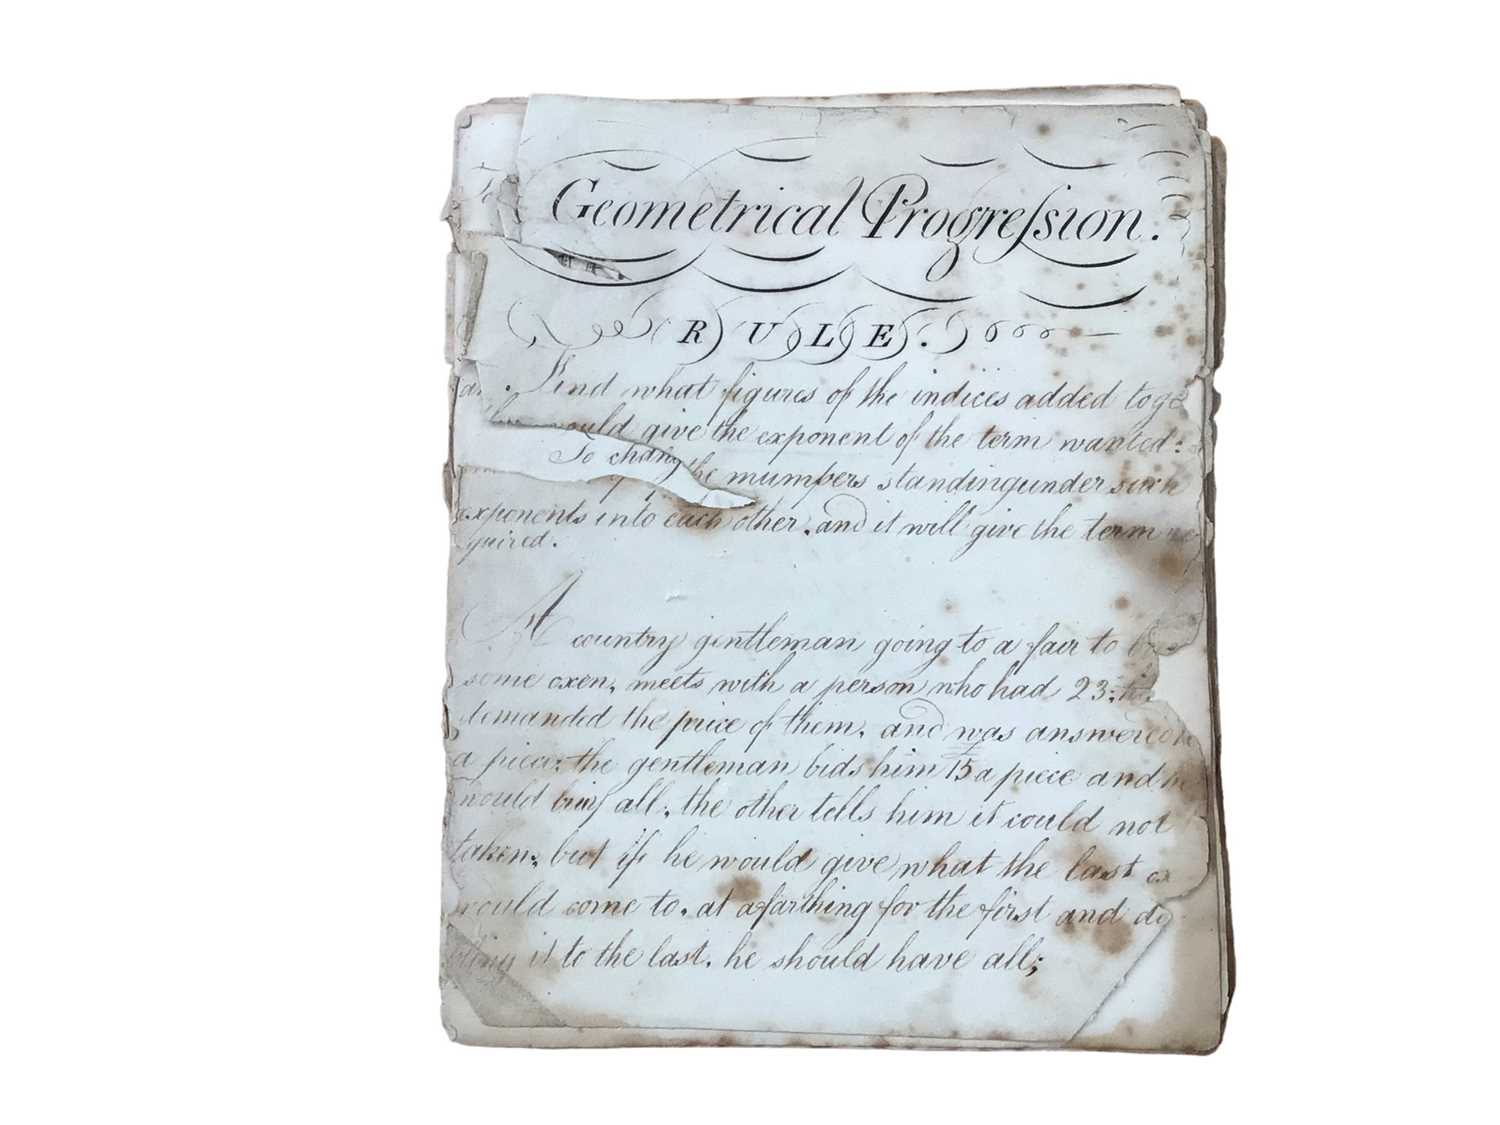 Geometrical Progreſsion.
RULE.
Find what figures of the indices added toge
would give the exponent of the term wanted:
To chang he mumpers standingunder such
exponents into each other, and it will give the term re
quired.
A country gentleman going to a fair to b
some oxen, meets with a person who had 23; he
demanded the price of them, and was answered
a piece: the gentleman bids him £15 a piece and he
would buy all; the other tells him it could not
taken; but if he would give what the last ox
would come to, at a farthing for the first and do
bling it to the last, he should have all;